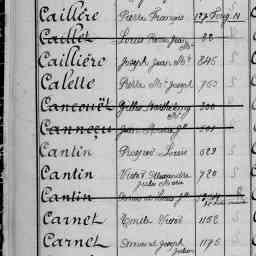 Caillère Pierre François
Caillet Louis Pierre Jean 22
Caillière Joseph Jean Mie 845
Calette Pierre Mie Joseph 753
Cancouët Gilles Barthélemy 300
Canneçu Jean 501
Cantin Prosper Louis 529
Cantin Victor Alexandre 720
Jules Marie
Cantin
Carnet Emile Victor 1152
Carnet Armand Joseph 1175
Julien